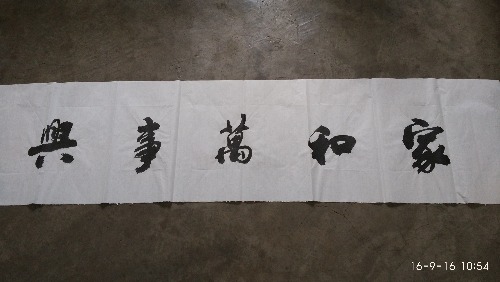 家和萬事興
16-9-16 10:54